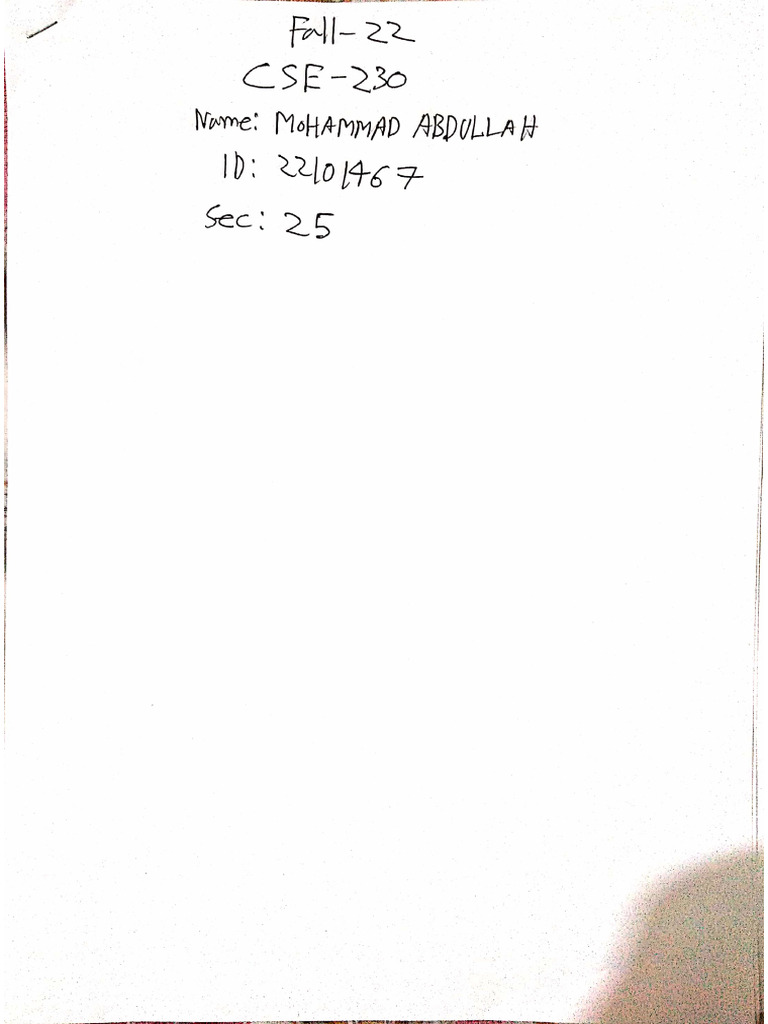 Fall-22
CSE-230
Name: MOHAMMAD ABDULLAH
ID: 22101467
Sec: 25